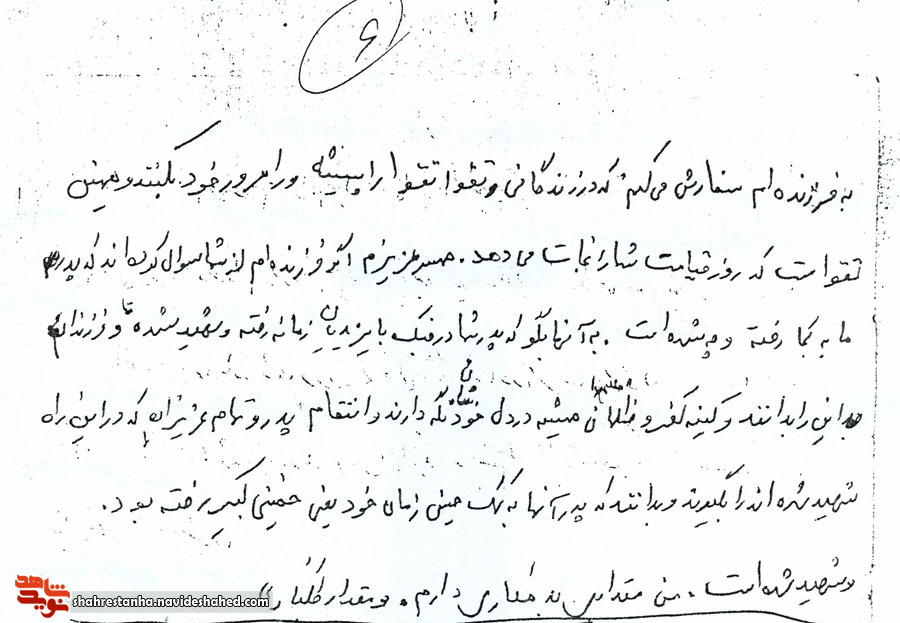 ۶
به فرزنده ام سفارش می کنم که در زندگانی و تقوا تقوا را پیشه ورامرور خود بکنند و همین
تقوا ست که روز قیامت شما را نجات می دهد. همسر عزیزم اگر فرزنده ام از شما سوال کرده اند که پدر
ما به کجا رفته و چه شده است. به آنها بگو که پدر شما در جنگ با یزیدیان زمانه رفته و شهید شده تا و فرزندانم
این را بدانند و کینه کفر و ظالمان همیشه در دل خودشان نگه دارند و انتقام پدر و تمام عزیزان که در این راه
شهید شده اند را بگیرند و بدانند که پدر آنها به کمک حسین زمان خود یعنی خمینی کبیر رفته بود.
و شهید شده است. من مقداری بدهکاری دارم. و مقدار طلبکار
نوید شاهد
shahrestanha.navideshahed.com